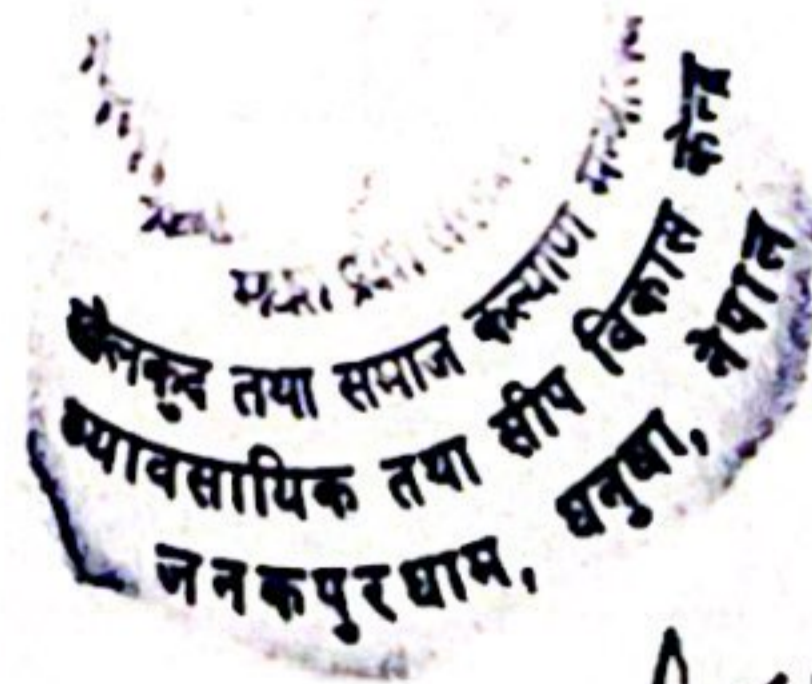 खेलकुद तथा समाज कल्याण
व्यावसायिक तथा सीप विकास केन्द्र
जनकपुरधाम, धनुषा, नेपाल